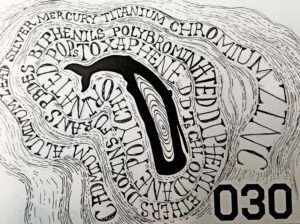 CADMIUM ALUMINUM LEAD SILVER MERCURY TITANIUM CHROMIUM ZINC
FURANS PBDES BIPHENILS POLYBROMINATED DIPHENYL ETHERS DIOXINS
TOXAPHENE DDTS CHLORDANE
030